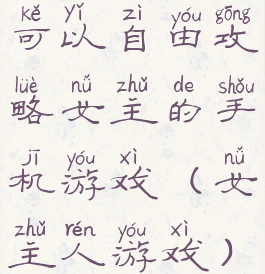 kě yǐ zì yóu gōng
可以自由攻
lüè nǚ zhǔ de shǒu
略女主的手
jī yóu xì nǚ
机游戏（女
zhǔ rén yóu xì
主人游戏）